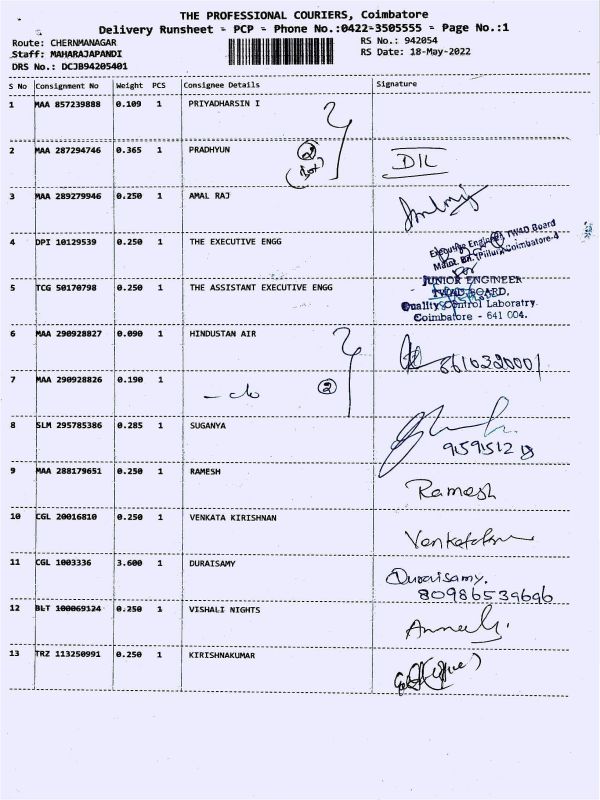 THE PROFESSIONAL COURIERS, Coimbatore
Delivery Runsheet - PCP - Phone No.:0422-3505555 - Page No.:1
Route: CHERNMANAGAR RS No.: 942054
Staff: MAHARAJAPANDI RS Date: 18-May-2022
DRS No.: DCJB94205401
S No Consignment No Weight PCS Consignee Details Signature
1 MAA 857239888 0.109 1 PRIYADHARSIN I
2 MAA 287294746 0.365 1 PRADHYUN 2 DIL
3 MAA 289279946 0.250 1 AMAL RAJ
4 DPI 10129539 0.250 1 THE EXECUTIVE ENGG
Executive Engineer, TWAD Board
Coimbatore-4
5 TCG 50170798 0.250 1 THE ASSISTANT EXECUTIVE ENGG
JUNIOR ENGINEER
TWAD BOARD,
Quality Control Laboratry
Coimbatore - 641 004.
6 MAA 290928827 0.090 1 HINDUSTAN AIR 8610320001
7 MAA 290928826 0.190 1 2
8 SLM 295785386 0.285 1 SUGANYA
9 MAA 288179651 0.250 1 RAMESH Ramesh
10 CGL 20016810 0.250 1 VENKATA KIRISHNAN
11 CGL 1003336 3.600 1 DURAISAMY Duraisamy.
80986539696
12 BLT 100069124 0.250 1 VISHALI NIGHTS
13 TRZ 113250991 0.250 1 KIRISHNAKUMAR